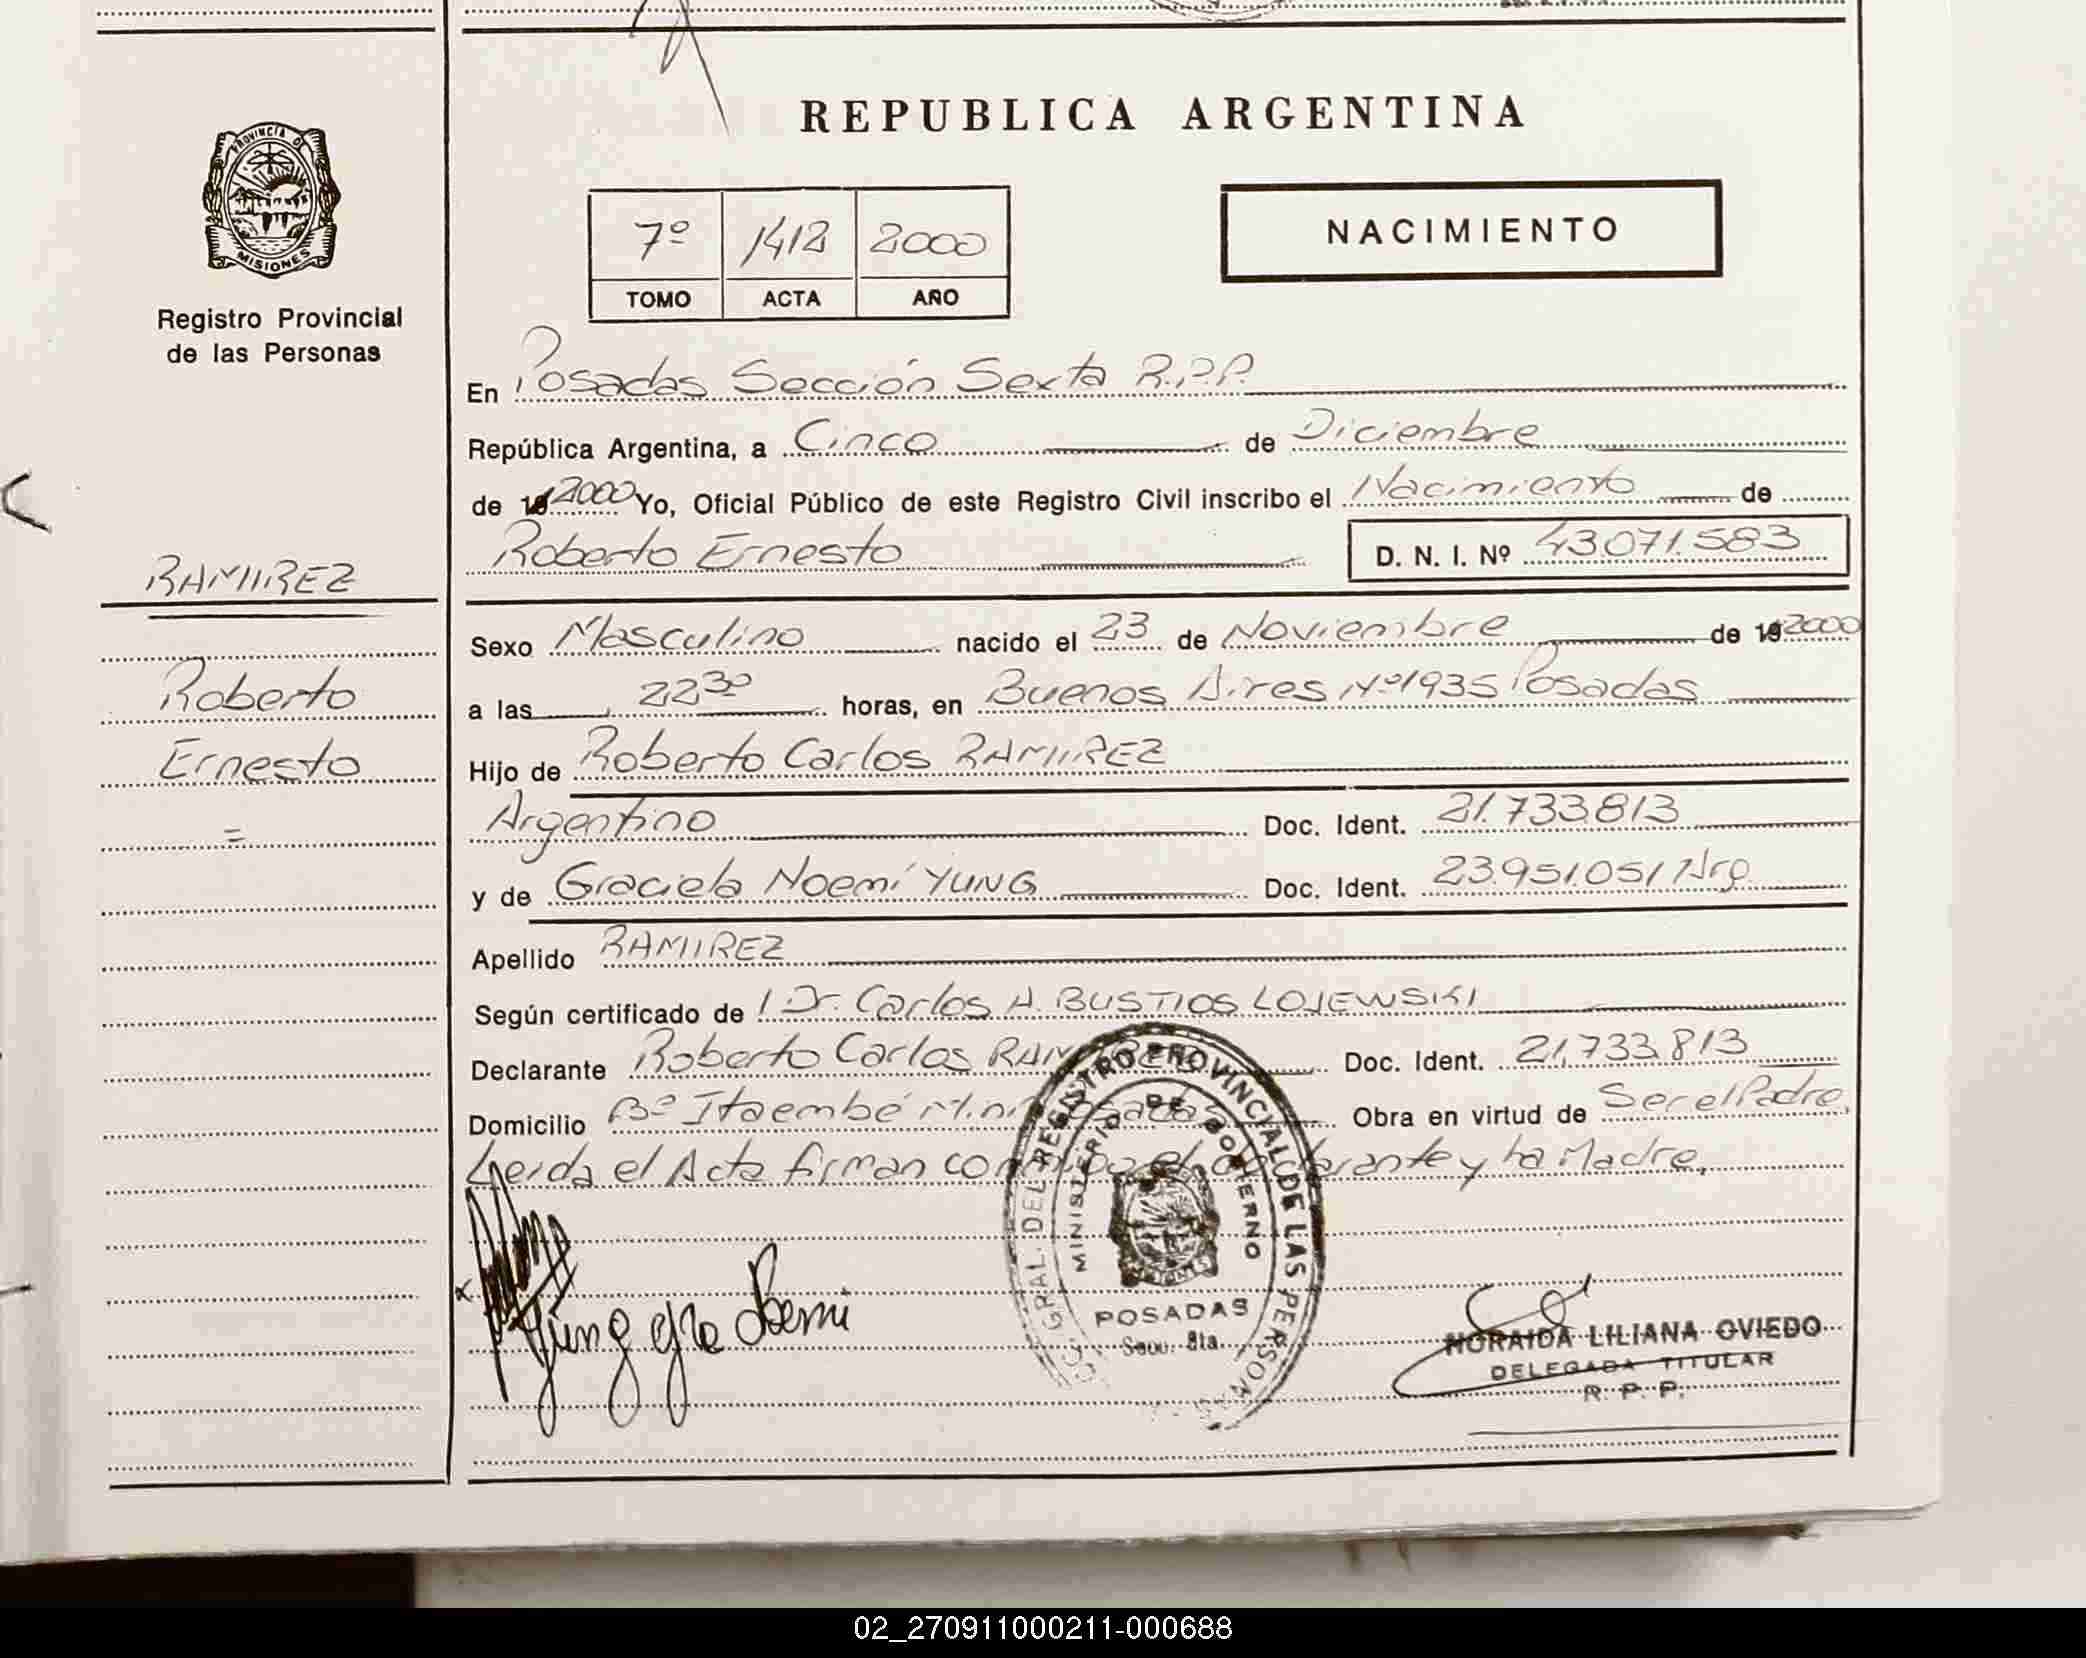 REPUBLICA ARGENTINA
PROVINCIA DE
MISIONES
Registro Provincial
de las Personas
7º 1412 2000
TOMO ACTA AÑO
NACIMIENTO
En Posadas Sección Sexta R.P.P.
República Argentina, a Cinco de Diciembre
de 19 2000 Yo, Oficial Público de este Registro Civil inscribo el Nacimiento de
Roberto Ernesto D. N. I. Nº 43.071.583
RAMIREZ
Roberto
Ernesto
=
Sexo Masculino nacido el 23 de Noviembre de 19 2000
a las 22 30 horas, en Buenos Aires Nº 1935 Posadas
Hijo de Roberto Carlos RAMIREZ
Argentino Doc. Ident. 21.733.813
y de Graciela Noemí YUNG Doc. Ident. 23.951.051 Arg.
Apellido RAMIREZ
Según certificado de l Dr. Carlos A. BUSTIOS LOJEWSKI
Declarante Roberto Carlos RAMIREZ Doc. Ident. 21.733.813
Domicilio Bº Itaembé Miní Posadas Obra en virtud de Ser el Padre,
Leída el Acta firman conmigo el declarante y la Madre.
GRAL. DEL REGISTRO PROVINCIAL DE LAS PERSONAS
MINISTERIO DE GOBIERNO
POSADAS
x
Yung Noemi
NORAIDA LILIANA OVIEDO
DELEGADA TITULAR
R. P. P.
02_270911000211-000688